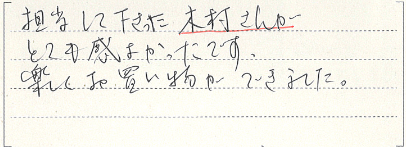 担当して下さった木村さんが
とても感じよかったです。
楽しくお買い物ができました。